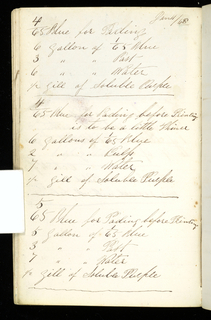 4
6S Blue for Pading
6 Gallon of 6S Blue
3 " " Past
6 " " Water
Gill of Soluble Purple
4
6S Blue for Pading before Printing
is to be a little thiner
6 Gallons of 6S Blue
2 " "
" " Water
Gill of Soluble Purple
5
6S Blue for Pading before Printing
5 Gallon of 6S Blue
3 " " Past
7 " " Water
Gill of Soluble Purple